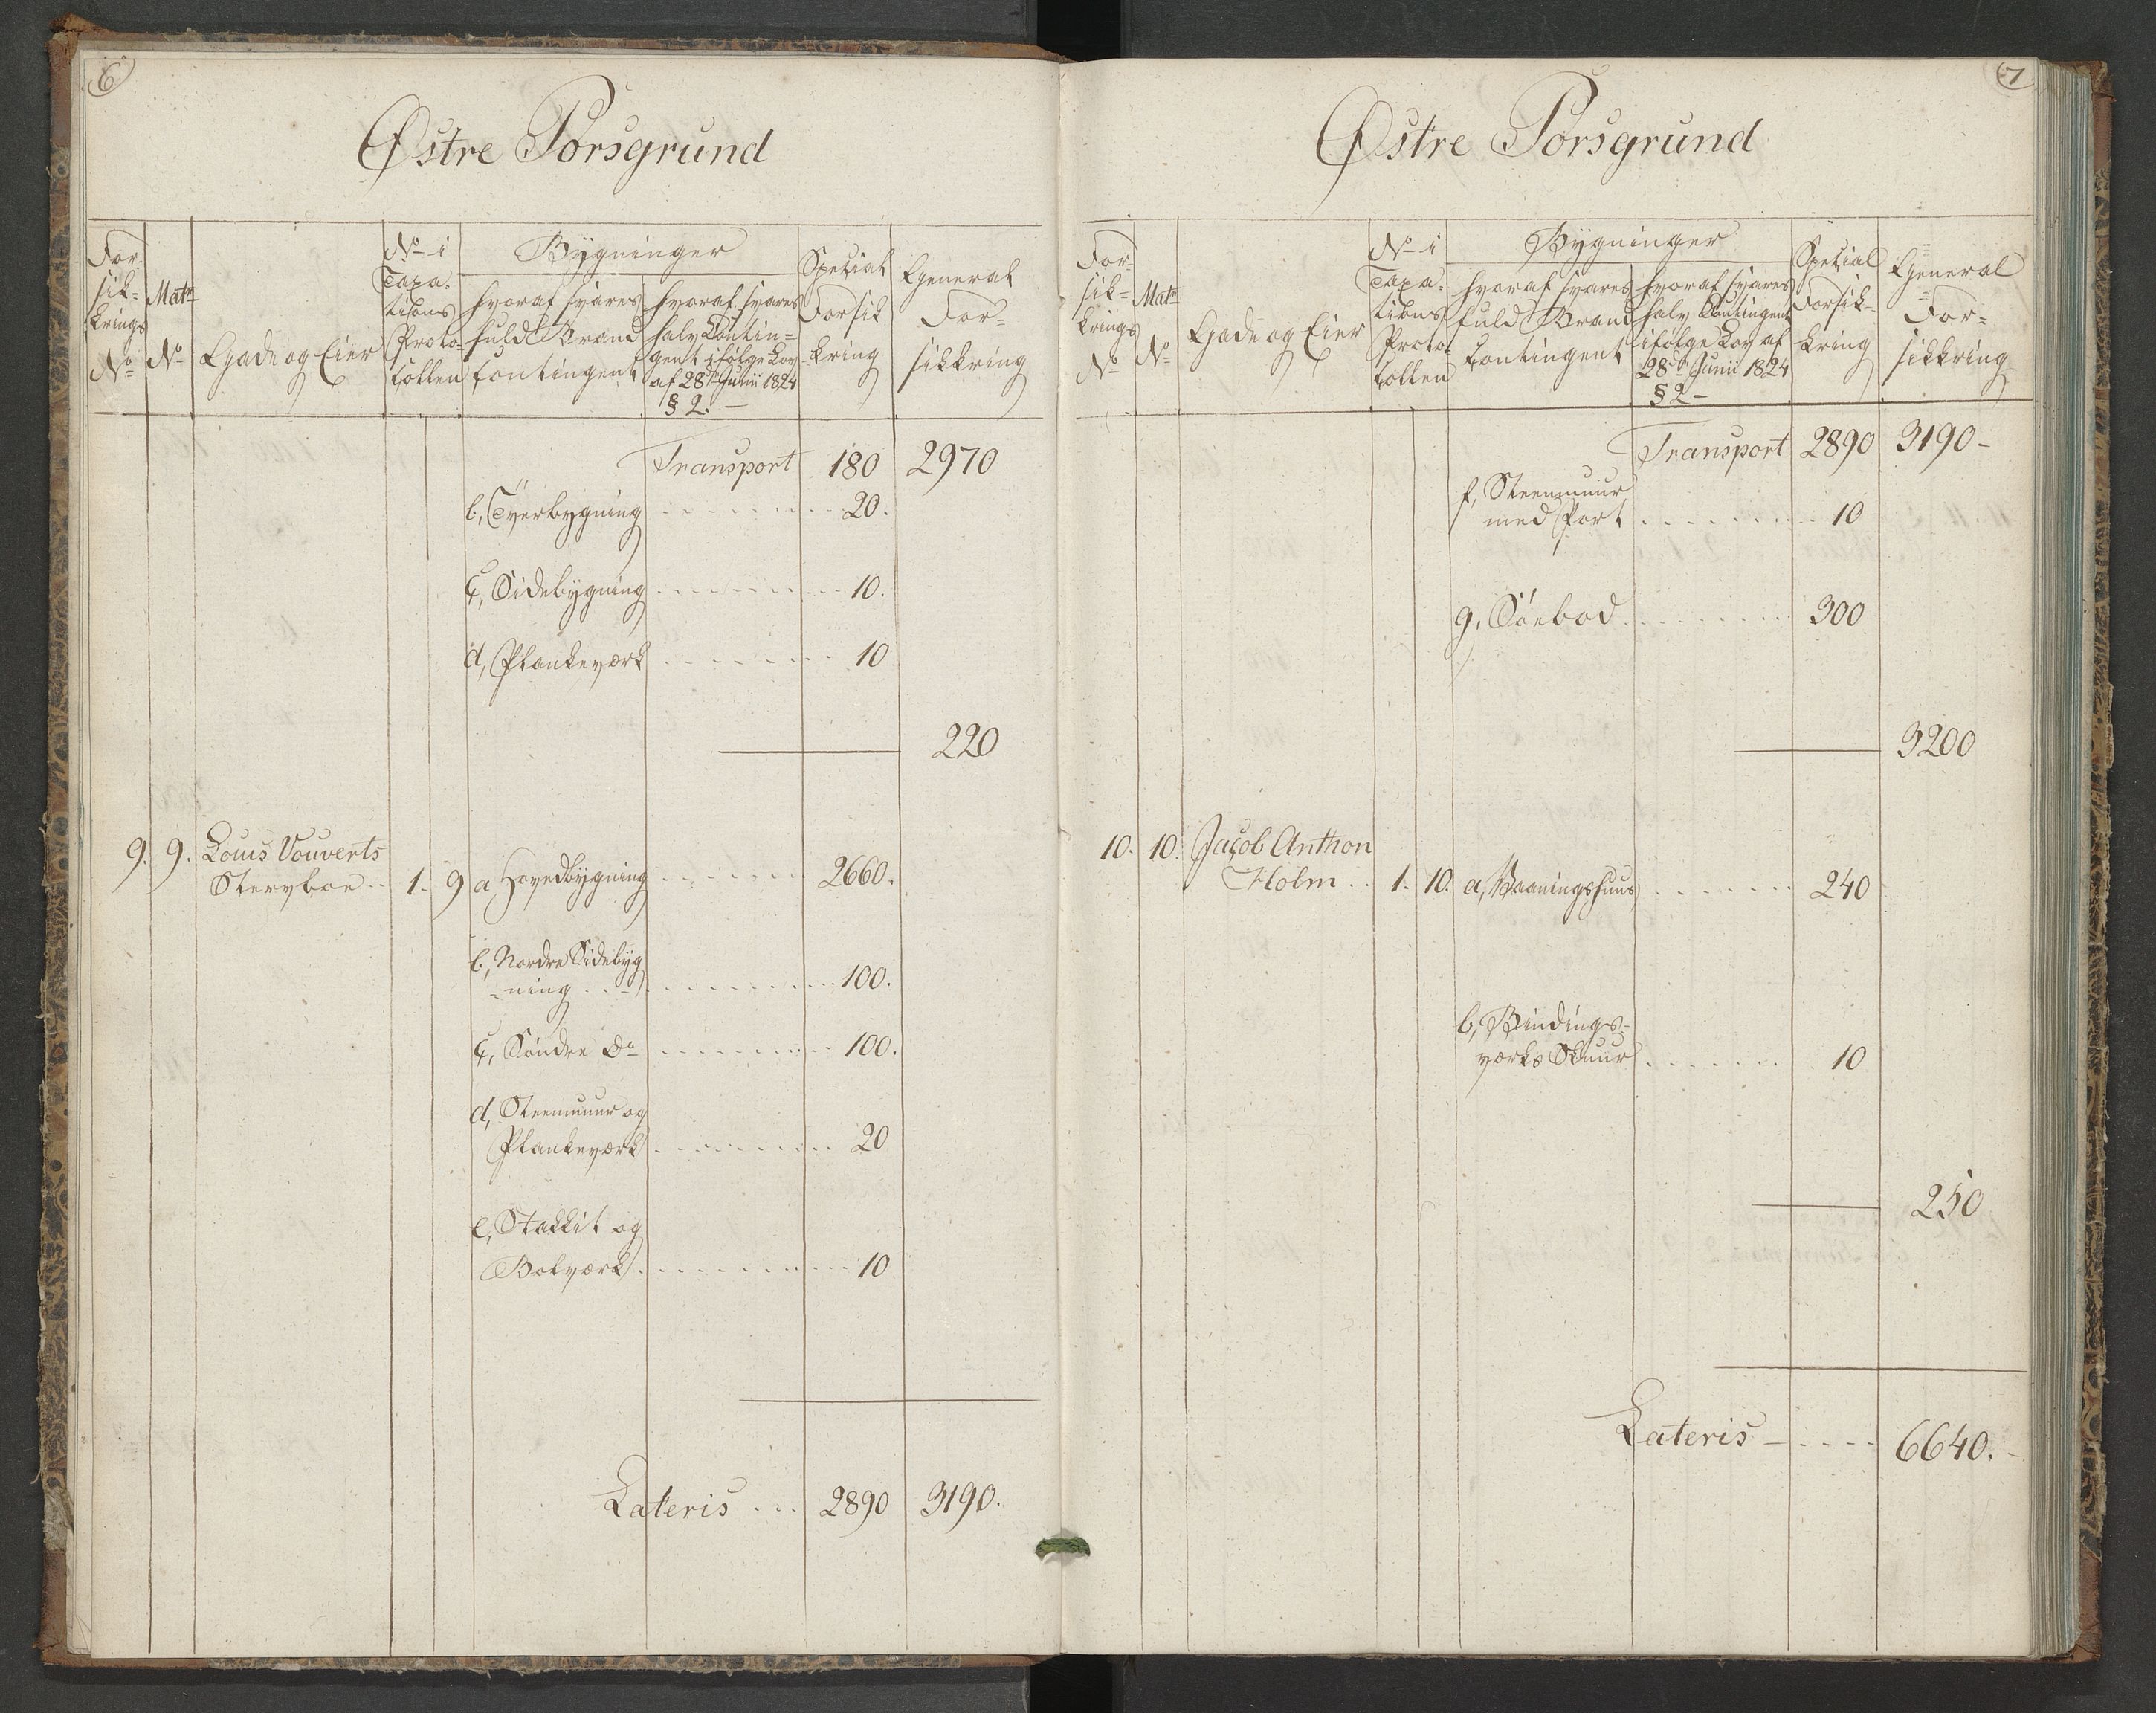 6
Østre Porsgrund
For-
sik-
krings
No
Matr
No
Gade og Eier
No i
Taxa-
tions
Proto-
collen
Bygninger
hvoraf svares
fuld Brand
contingent
hvoraf svares
halv Contin-
gent ifølge Lov
af 28de Junii 1824
§ 2. -
Special
Forsik
kring
General
For-
sikkring
Transport 180 2970
b, Tverbygning 20.
c, Sidebygning 10.
d, Plankeværk 10
220
9. 9. Louis Vouverts
Stervboe 1. 9 a Hovedbygning 2660.
b, Nordre Sidebyg
-ning 100.
c, Søndre Do 100.
d, Steenmuur og
Plankeværk 20
e, Stakkit og
Bolværk 10
Lateris 2890 3190.
7
Østre Porsgrund
For-
sik-
krings
No
Matr
No
Gade og Eier
No i
Taxa-
tions
Proto-
collen
Bygninger
hvoraf svares
fuld Brand
Contingent
hvoraf svares
halv Contingent
ifølge Lov af
28de Junii 1824
§ 2 -
Special
Forsik-
kring
General
For-
sikkring
Transport 2890 3190 -
f, Steenmuur
med Port 10
g, Søebod 300
3200
10. 10. Jacob Anthon
Holm 1. 10. a, Vaaningshuus 240
b, Bindings-
værks Skuur 10
250
Lateris - 6640. -